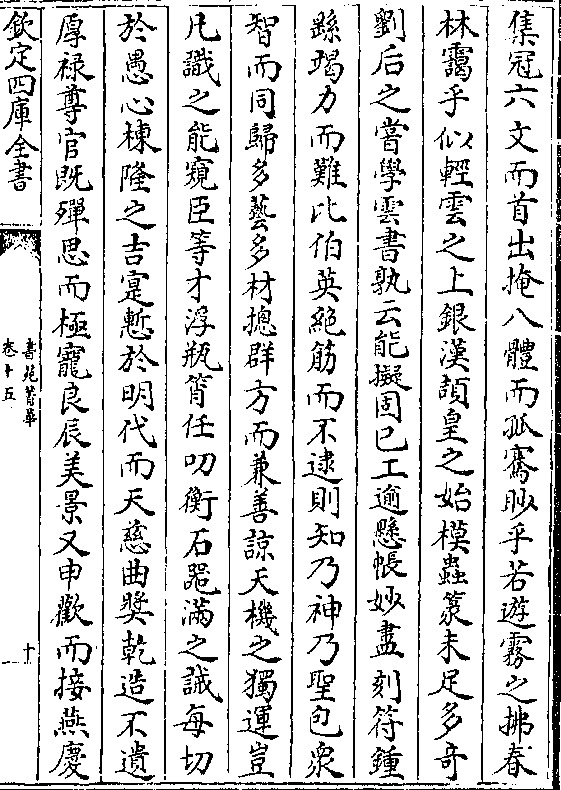 集冠六文而首出掩八體而孤騫眇乎若遊霧之拂春
林靄乎似輕雲之上銀漢頡皇之始模蟲篆未足多奇
劉后之嘗學雲書孰云能擬固已工逾懸帳妙盡刻符鍾
繇竭力而難比伯英絶筋而不逮則知乃神乃聖包衆
智而同歸多藝多材摠群方而兼善諒天機之獨運豈
凡識之能窺臣等才浮瓶筲任叨衡石器滿之誡每切
於愚心棟隆之吉寔慙於明代而天慈曲奬乾造不遺
厚禄尊官既殫思而極寵良辰美景又申歡而接燕慶
欽定四庫全書
書苑菁華
卷十五
十